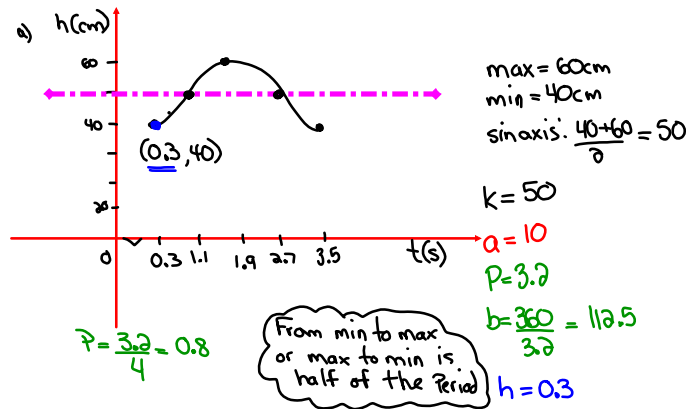 a)
h(cm)
60
40
20
0
(0.3, 40)
0.3 1.1 1.9 2.7 3.5
t(s)
max = 60cm
min = 40cm
sinaxis: 40+60/2 = 50
k = 50
a = 10
P = 3.2
b = 360/3.2 = 112.5
h = 0.3
P = 3.2/4 = 0.8
From min to max
or max to min is
half of the Period